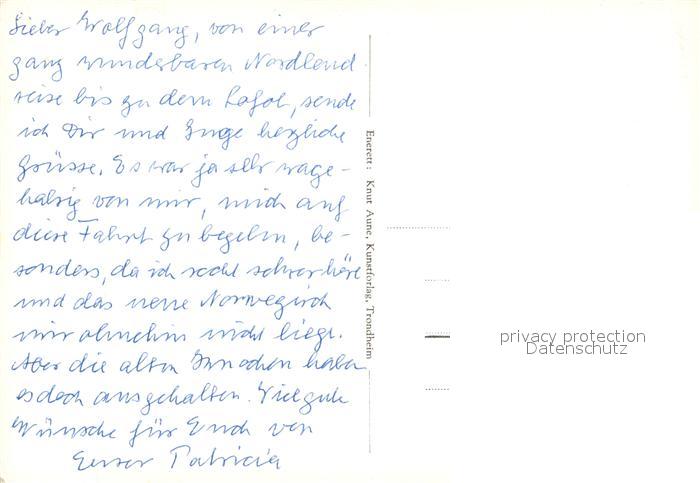 Lieber Wolfgang, von einer
ganz wunderbaren Nordland-
reise bis zu dem Lofot, sende
ich Dir und Inge herzliche
Grüsse. Es war ja sehr wage-
halsig von mir, mich auf
diese Fahrt zu begeben, be-
sonders, da ich recht schwer höre
und das neue Norwegisch
mir ohnehin nicht liegt.
Aber die alten Knochen haben
es doch ausgehalten. Viel gute
Wünsche für Euch von
Eurer Patricia
Enerett: Knut Aune, Kunstforlag, Trondheim
privacy protection
Datenschutz